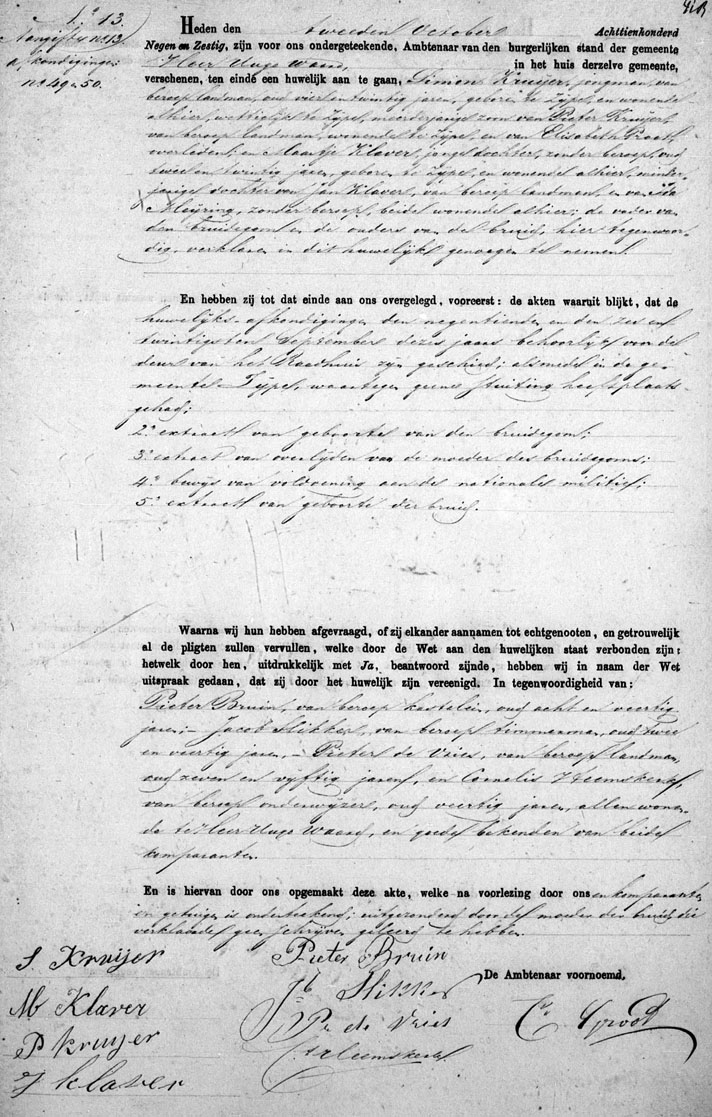 No. 13.
Aangifte no. 13
afkondigingen
no. 49 en 50.
Heden den tweeden October Achttienhonderd
Negen en Zestig, zijn voor ons ondergeteekende, Ambtenaar van den burgerlijken stand der gemeente
Heer Hugo Waard, in het huis derzelve gemeente,
verschenen, ten einde een huwelijk aan te gaan, Simon Kruijer, jongman, van
beroep landman, oud vier en twintig jaren, geboren te Zijpe, en wonende
alhier, wettelijk te Zijpe, meerderjarige zoon van Pieter Kruijer,
van beroep landman, wonende te Zijpe, en van Elisabeth Groet,
overleden; en Maartje Klaver, jonge dochter, zonder beroep, oud
twee en twintig jaren, geboren te Zijpe, en wonende alhier, minder-
jarige dochter van Jan Klaver, van beroep landman, en van
Meijring, zonder beroep, beide wonende alhier; de vader van
den bruidegom en de ouders van de bruid, hier tegenwoor-
dig, verklaren in dit huwelijk genoegen te nemen.
En hebben zij tot dat einde aan ons overgelegd, vooreerst: de akten waaruit blijkt, dat de
huwelijks-afkondigingen den negentienden en den zes en
twintigsten September dezes jaars behoorlijk voor de
deur van het Raadhuis zijn geschied; alsmede in de ge-
meente Zijpe, waartegen geene stuiting heeft plaats
gehad;
2o. extract van geboorte van den bruidegom;
3o. extract van overlijden van de moeder des bruidegoms;
4o. bewijs van voldoening aan de nationale militie;
5o. extract van geboorte der bruid.
Waarna wij hun hebben afgevraagd, of zij elkander aannamen tot echtgenooten, en getrouwelijk
al de pligten zullen vervullen, welke door de Wet aan den huwelijken staat verbonden zijn:
hetwelk door hen, uitdrukkelijk met Ja, beantwoord zijnde, hebben wij in naam der Wet
uitspraak gedaan, dat zij door het huwelijk zijn vereenigd. In tegenwoordigheid van:
Pieter Bruin, van beroep kastelein, oud acht en veertig
jaren; – Jacob Slikker, van beroep timmerman, oud twee
en veertig jaren, – Pieter de Vries, van beroep landman,
oud zeven en vijftig jaren, en Cornelis Heemskerk,
van beroep onderwijzer, oud veertig jaren, allen wonen-
de te Heer Hugo Waard, en goede bekenden van beide
komparanten.
En is hiervan door ons opgemaakt deze akte, welke na voorlezing door ons en komparanten
en getuigen is onderteekend; uitgezonderd door de moeder der bruid die
verklaarde geen schrijven geleerd te hebben.
S Kruijer
Pieter Bruin
De Ambtenaar voornoemd,
Jb Slikker
M Klaver
Pr de Vries
C. Groot
P kruijer
C Heemskerk
J klaver